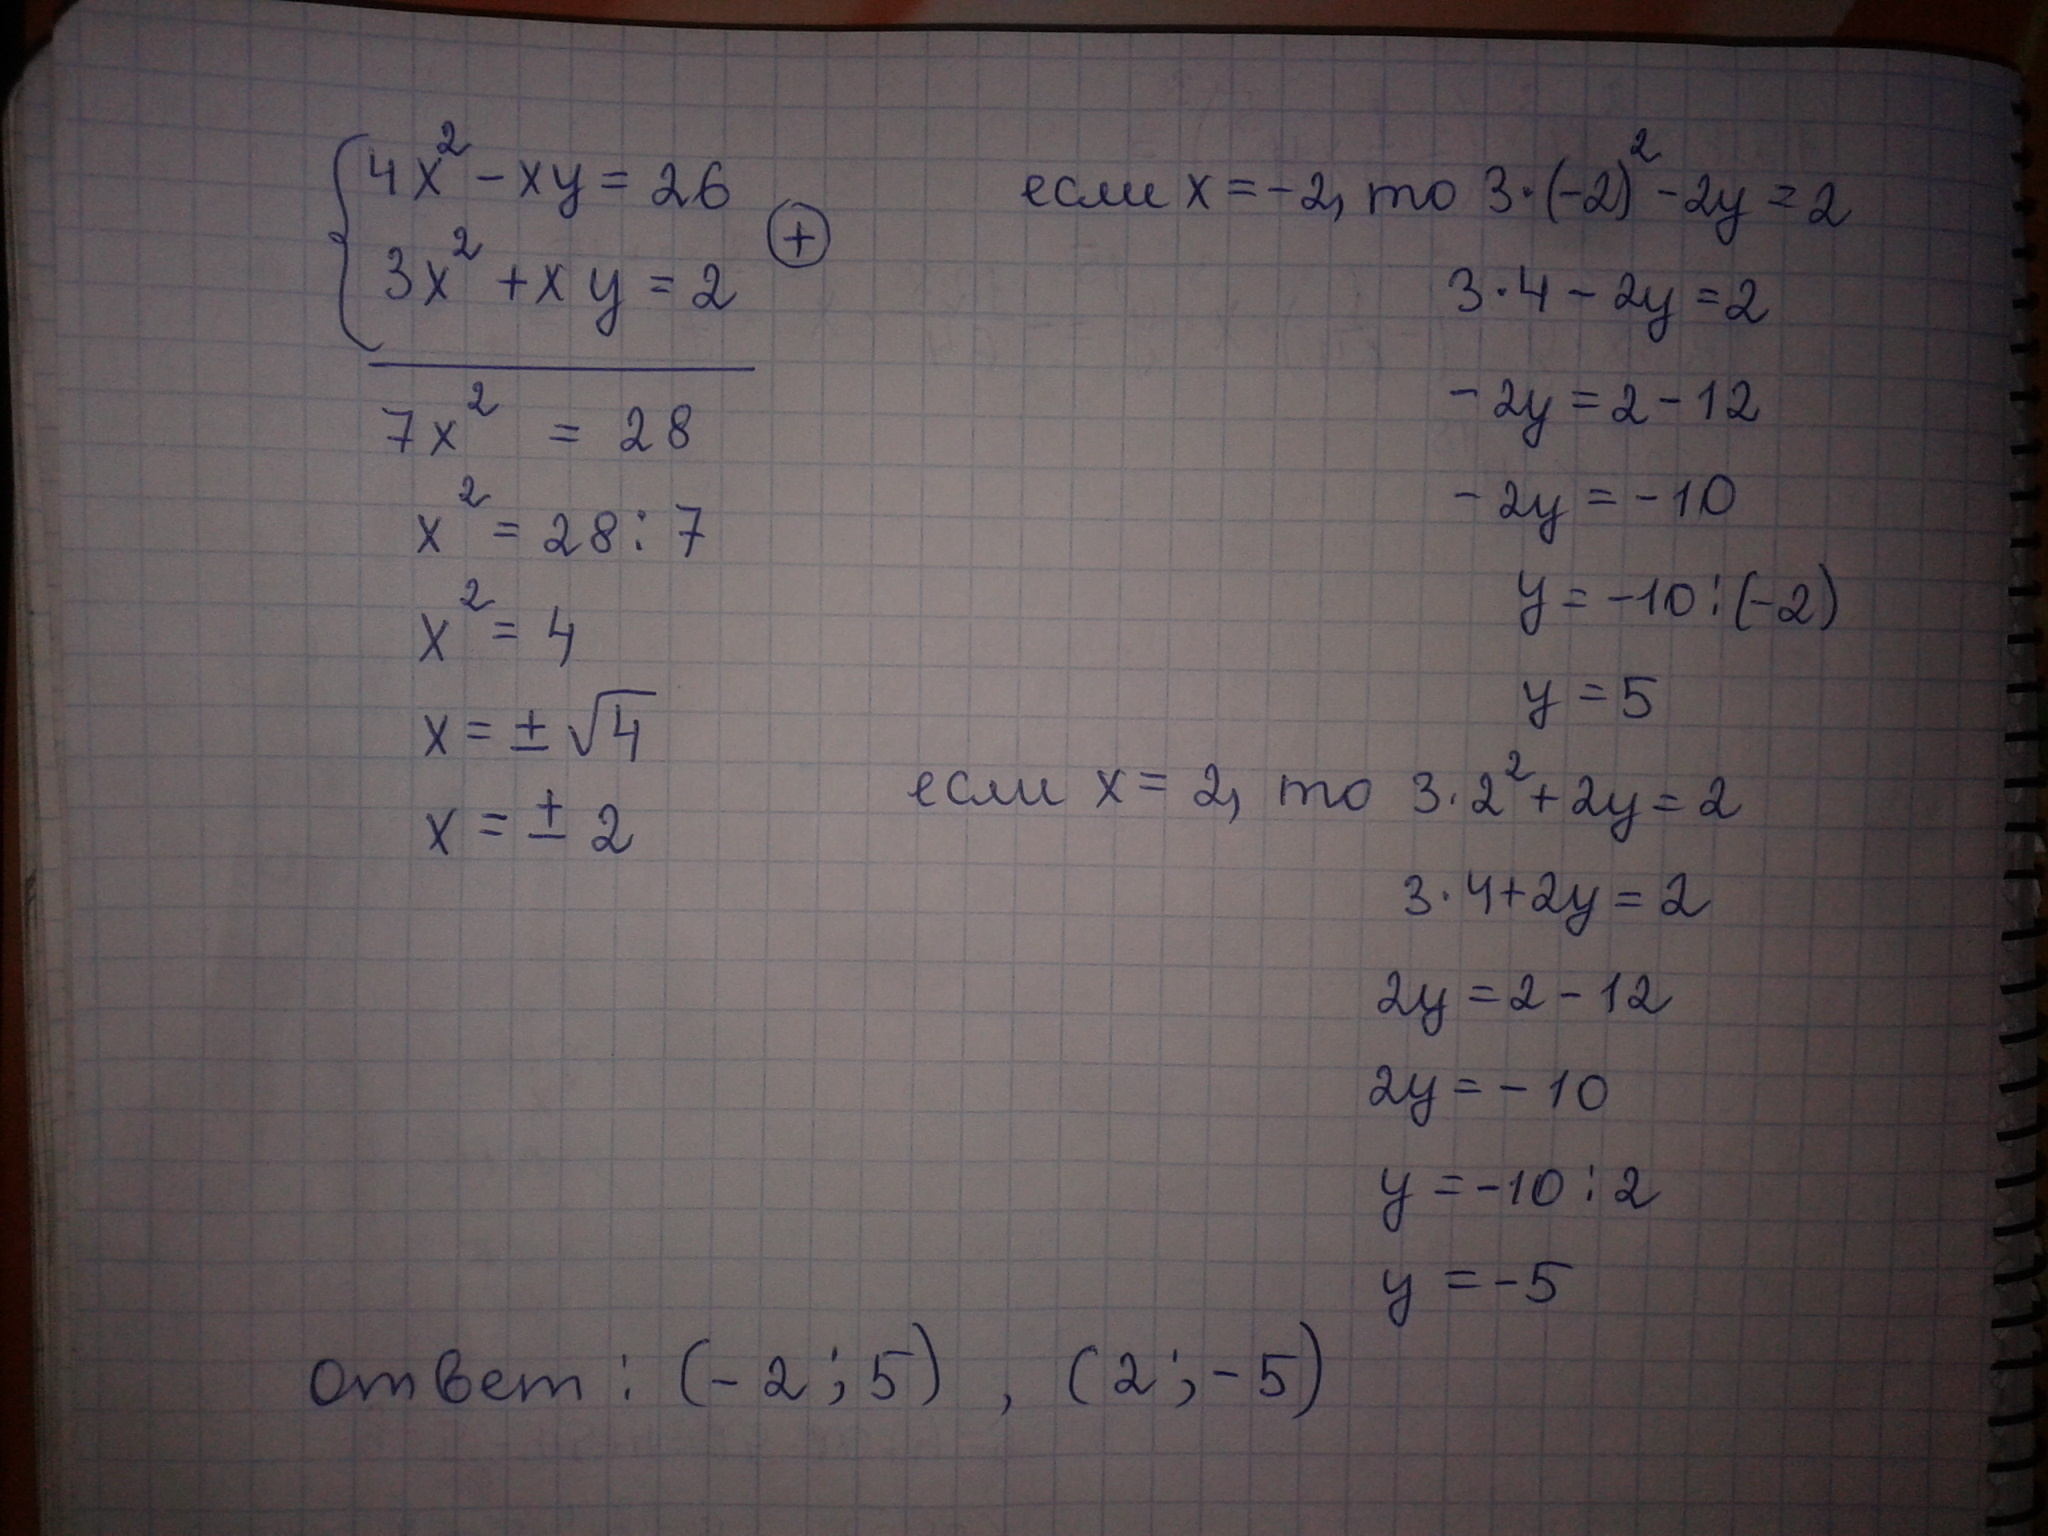 4x² - xy = 26
3x² + xy = 2
⊕
7x² = 28
x² = 28 : 7
x² = 4
x = ± √4
x = ± 2
если x = -2, то 3·(-2)² - 2y = 2
3·4 - 2y = 2
- 2y = 2 - 12
- 2y = -10
y = -10 : (-2)
y = 5
если x = 2, то 3·2² + 2y = 2
3·4 + 2y = 2
2y = 2 - 12
2y = - 10
y = -10 : 2
y = -5
ответ : (-2 ; 5) , (2 ; -5)